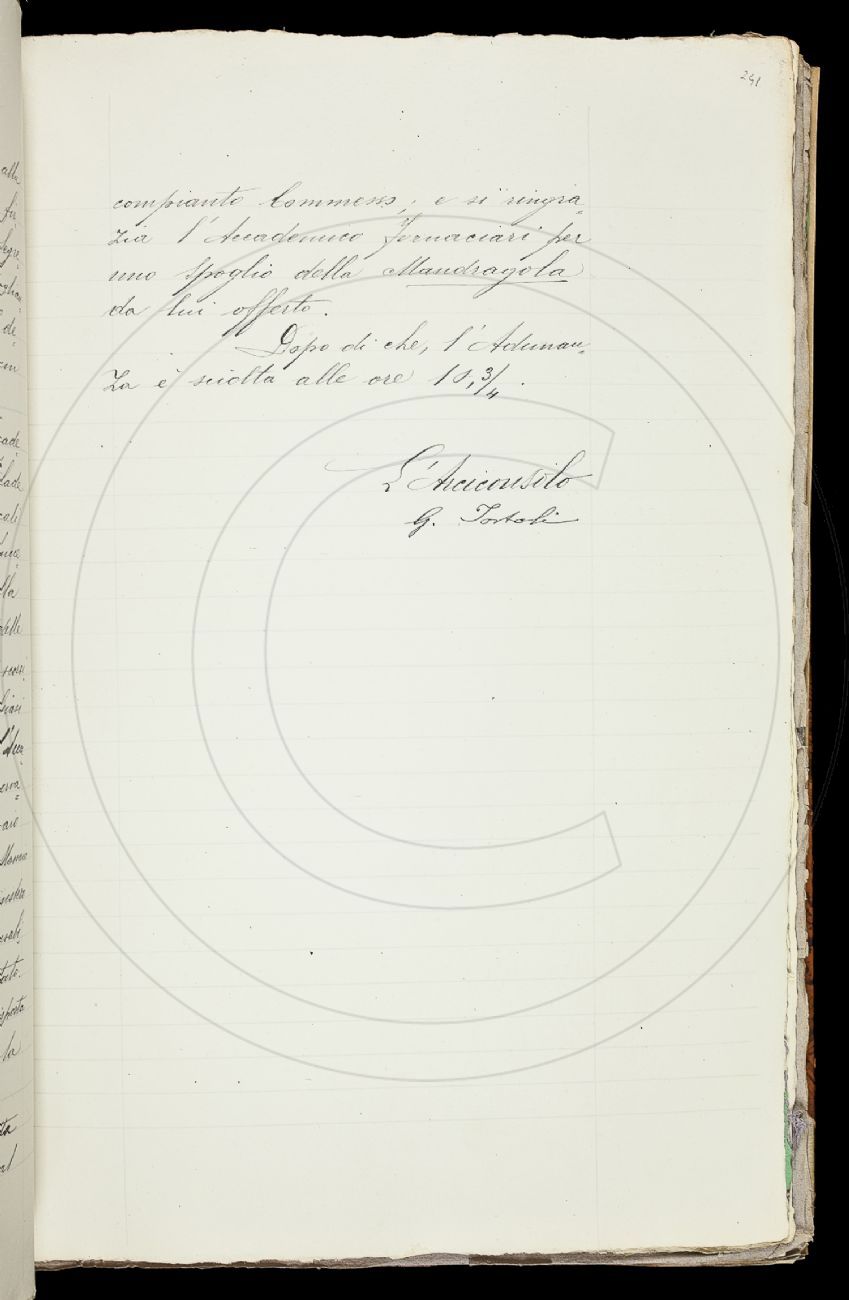 241
compianto Commess.; e si ringra=
zia l'Accademico Fornaciari per
uno spoglio della Mandragola
da lui offerto.
Dopo di che, l'Adunan=
za è sciolta alle ore 10,3/4.
L'Arciconsolo
G. Tortoli